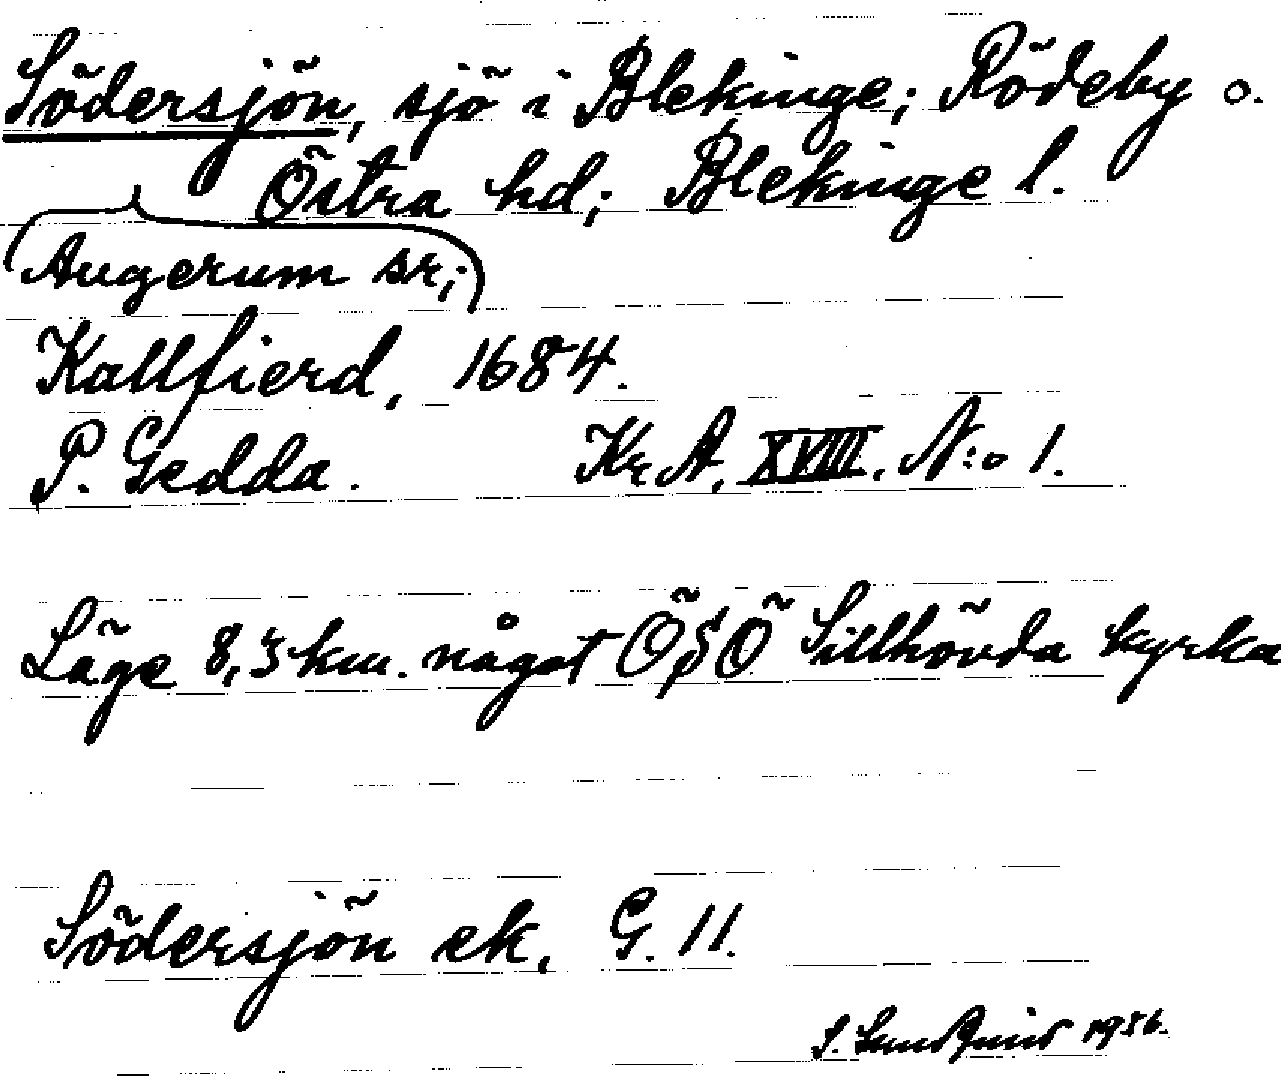 Södersjön, sjö i Blekinge; Rödeby o.
Östra hd; Blekinge l.
Augerum sr;
Kallfierd, 1684.
P. Gedda. Kr.A. XVIII. N:o 1.
Läge 8,3 km. något ÖSÖ Sillhövda kyrka
Södersjön ek. G. 11.
S. Sundquist 1956.